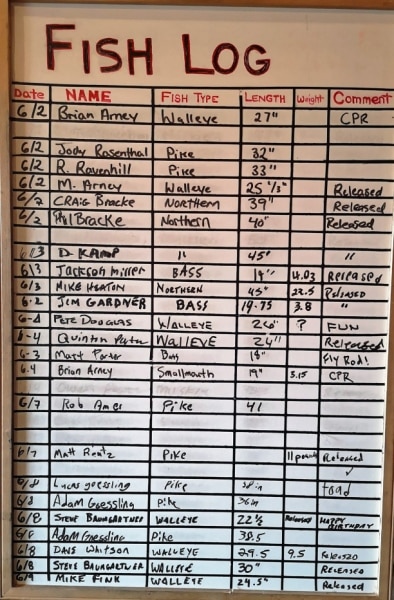 FISH LOG
Date NAME FISH TYPE LENGTH Weight Comment
6/2 Brian Arney Walleye 27" CPR
6/2 Jody Rosenthal Pike 32"
6/2 R. Ravenhill Pike 33"
6/2 M. Arney Walleye 25 Released
6/2 CRAIG Bracke Northern 39" Released
6/2 Bracke Northern 40" Released
6/3 D. KAMP " 45" "
6/3 Jackson Miller BASS 19" 4.03 Released
6/3 MIKE HEATON NORTHERN 45" 22.5 Released
6-2 JIM GARDNER BASS 19.75 3.8 "
6-4 PETE DOUGLAS WALLEYE 26" ? FUN
6-4 Quintin WALLEYE 24" Released
6-3 Matt Bass 18" Fly Rod!
6-4 Brian Arney Smallmouth 19" 3.15 CPR
6/7 Rob Ames Pike 41
6/7 Matt Rentz Pike 11 pounds Released
6/8 Lucas goessling Pike 38 in toad
6/8 Adam Goessling Pike 36in
6/8 STEVE BAUMGARTNER WALLEYE 22½ Released HAPPY BIRTHDAY
6/8 Adam Goessling Pike 38.5
6/8 DAVE WATSON WALLEYE 29.5 9.5 RELEASED
6/8 STEVE BAUMGARTNER WALLEYE 30" RELEASED
6/9 MIKE FINK WALLEYE 24.5" Released